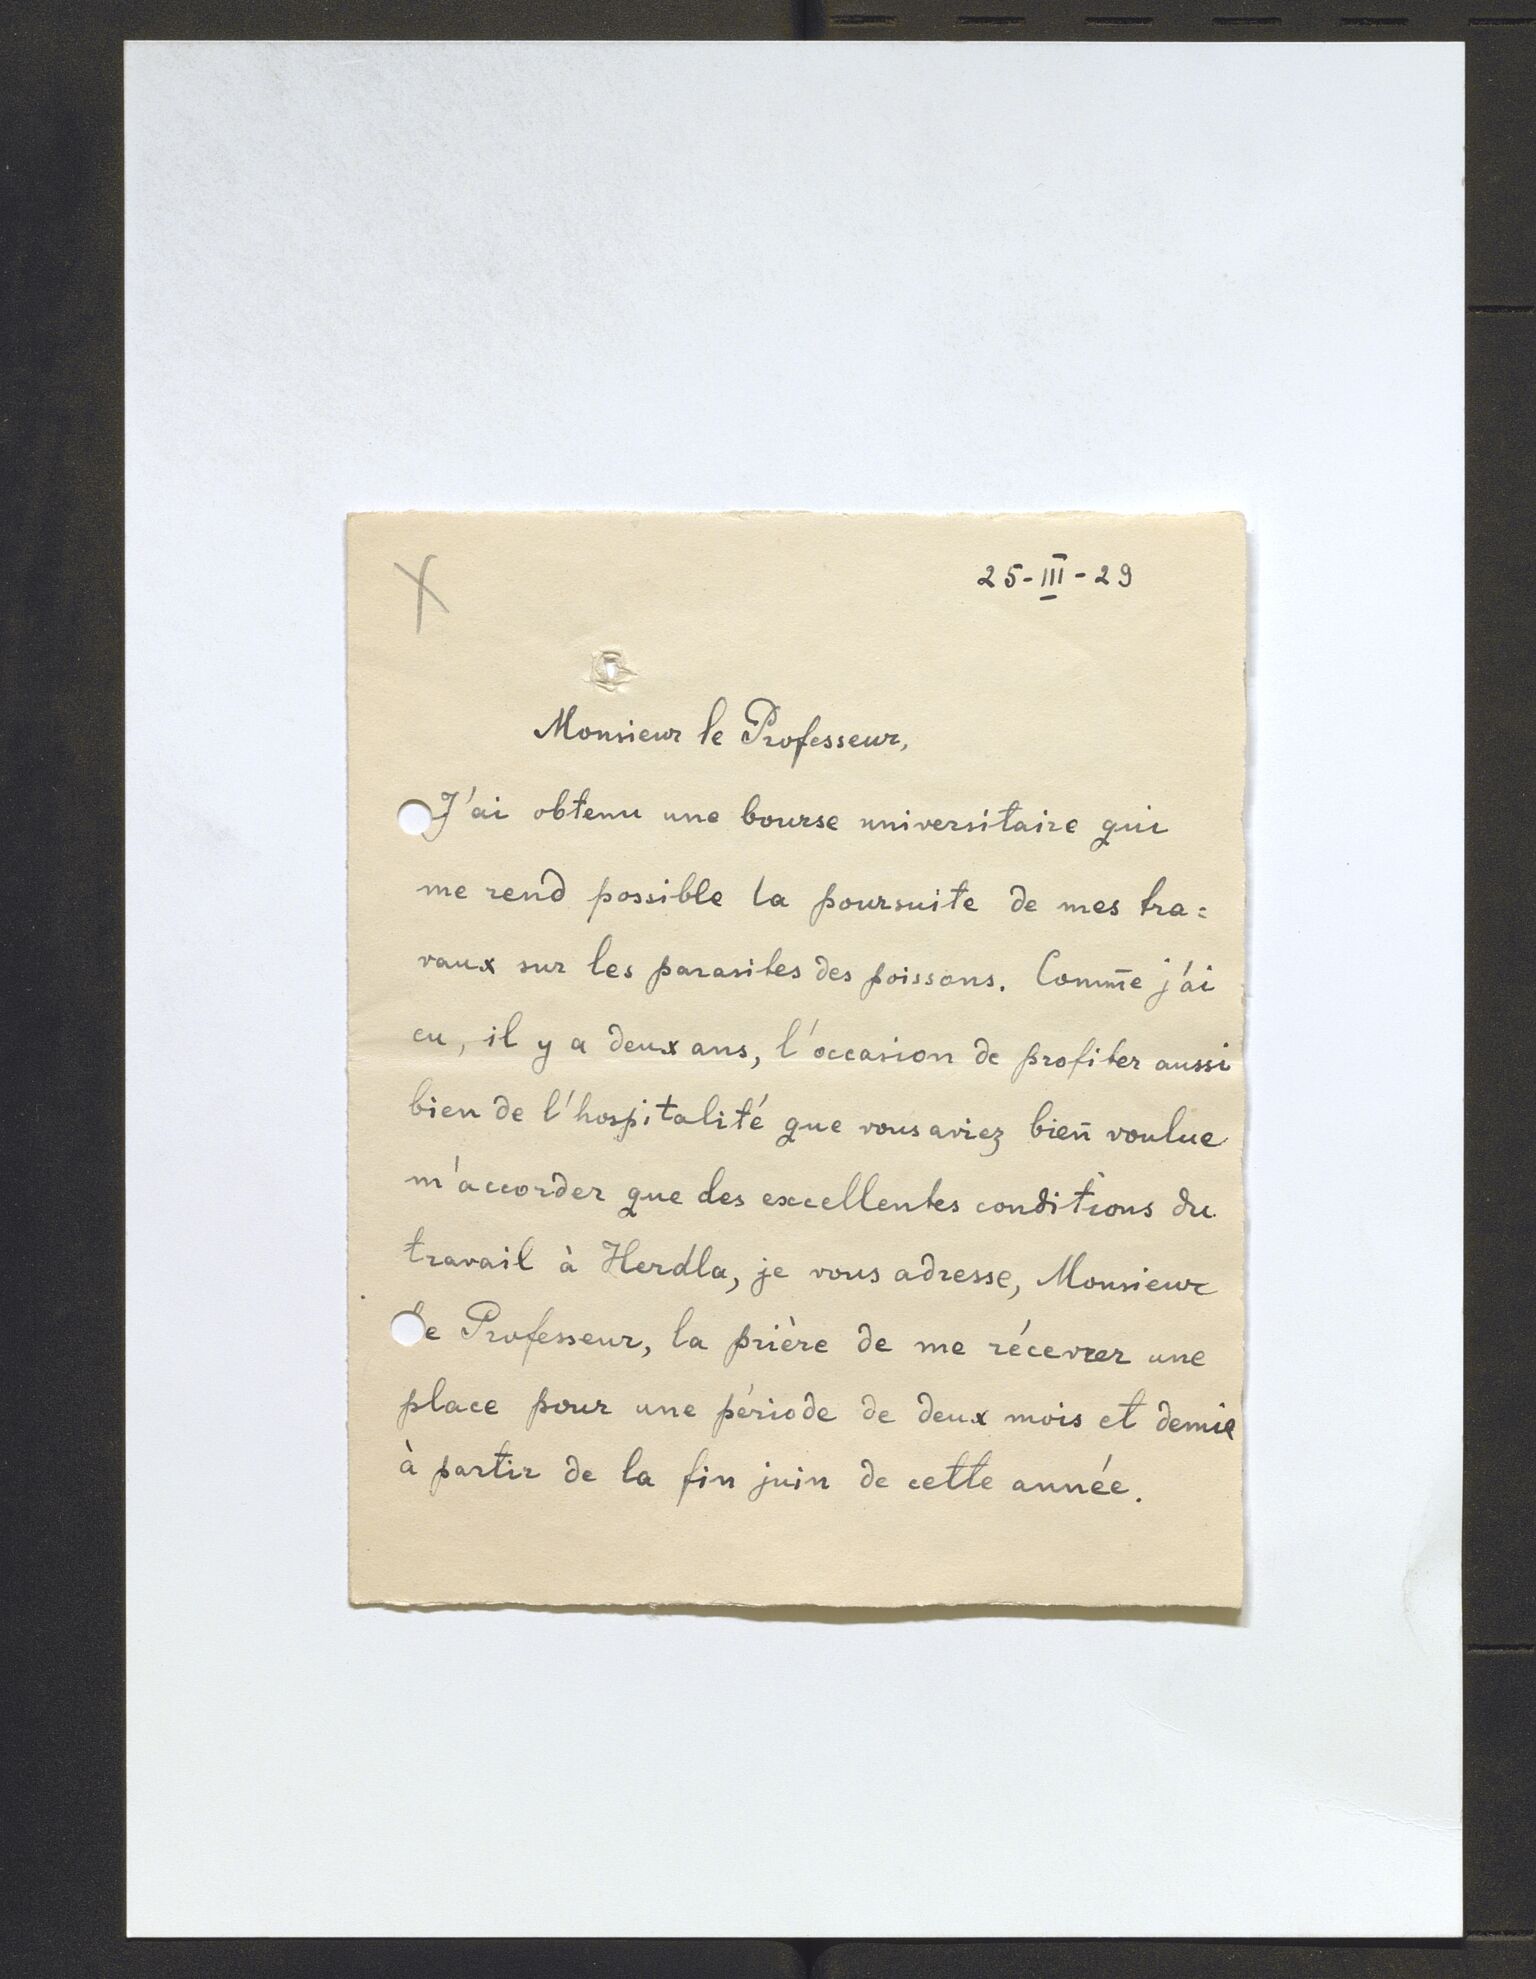 25-III-29
Monsieur le Professeur,
J'ai obtenu une bourse universitaire qui
me rend possible la poursuite de mes tra=
vaux sur les parasites des poissons. Com̄e j'ai
eu, il y a deux ans, l'occasion de profiter aussi
bien de l'hospitalité que vous aviez bien voulue
m'accorder que des excellentes conditions du
travail à Herdla, je vous adresse, Monsieur
le Professeur, la prière de me récevrer une
place pour une période de deux mois et demie
à partir de la fin juin de cette année.